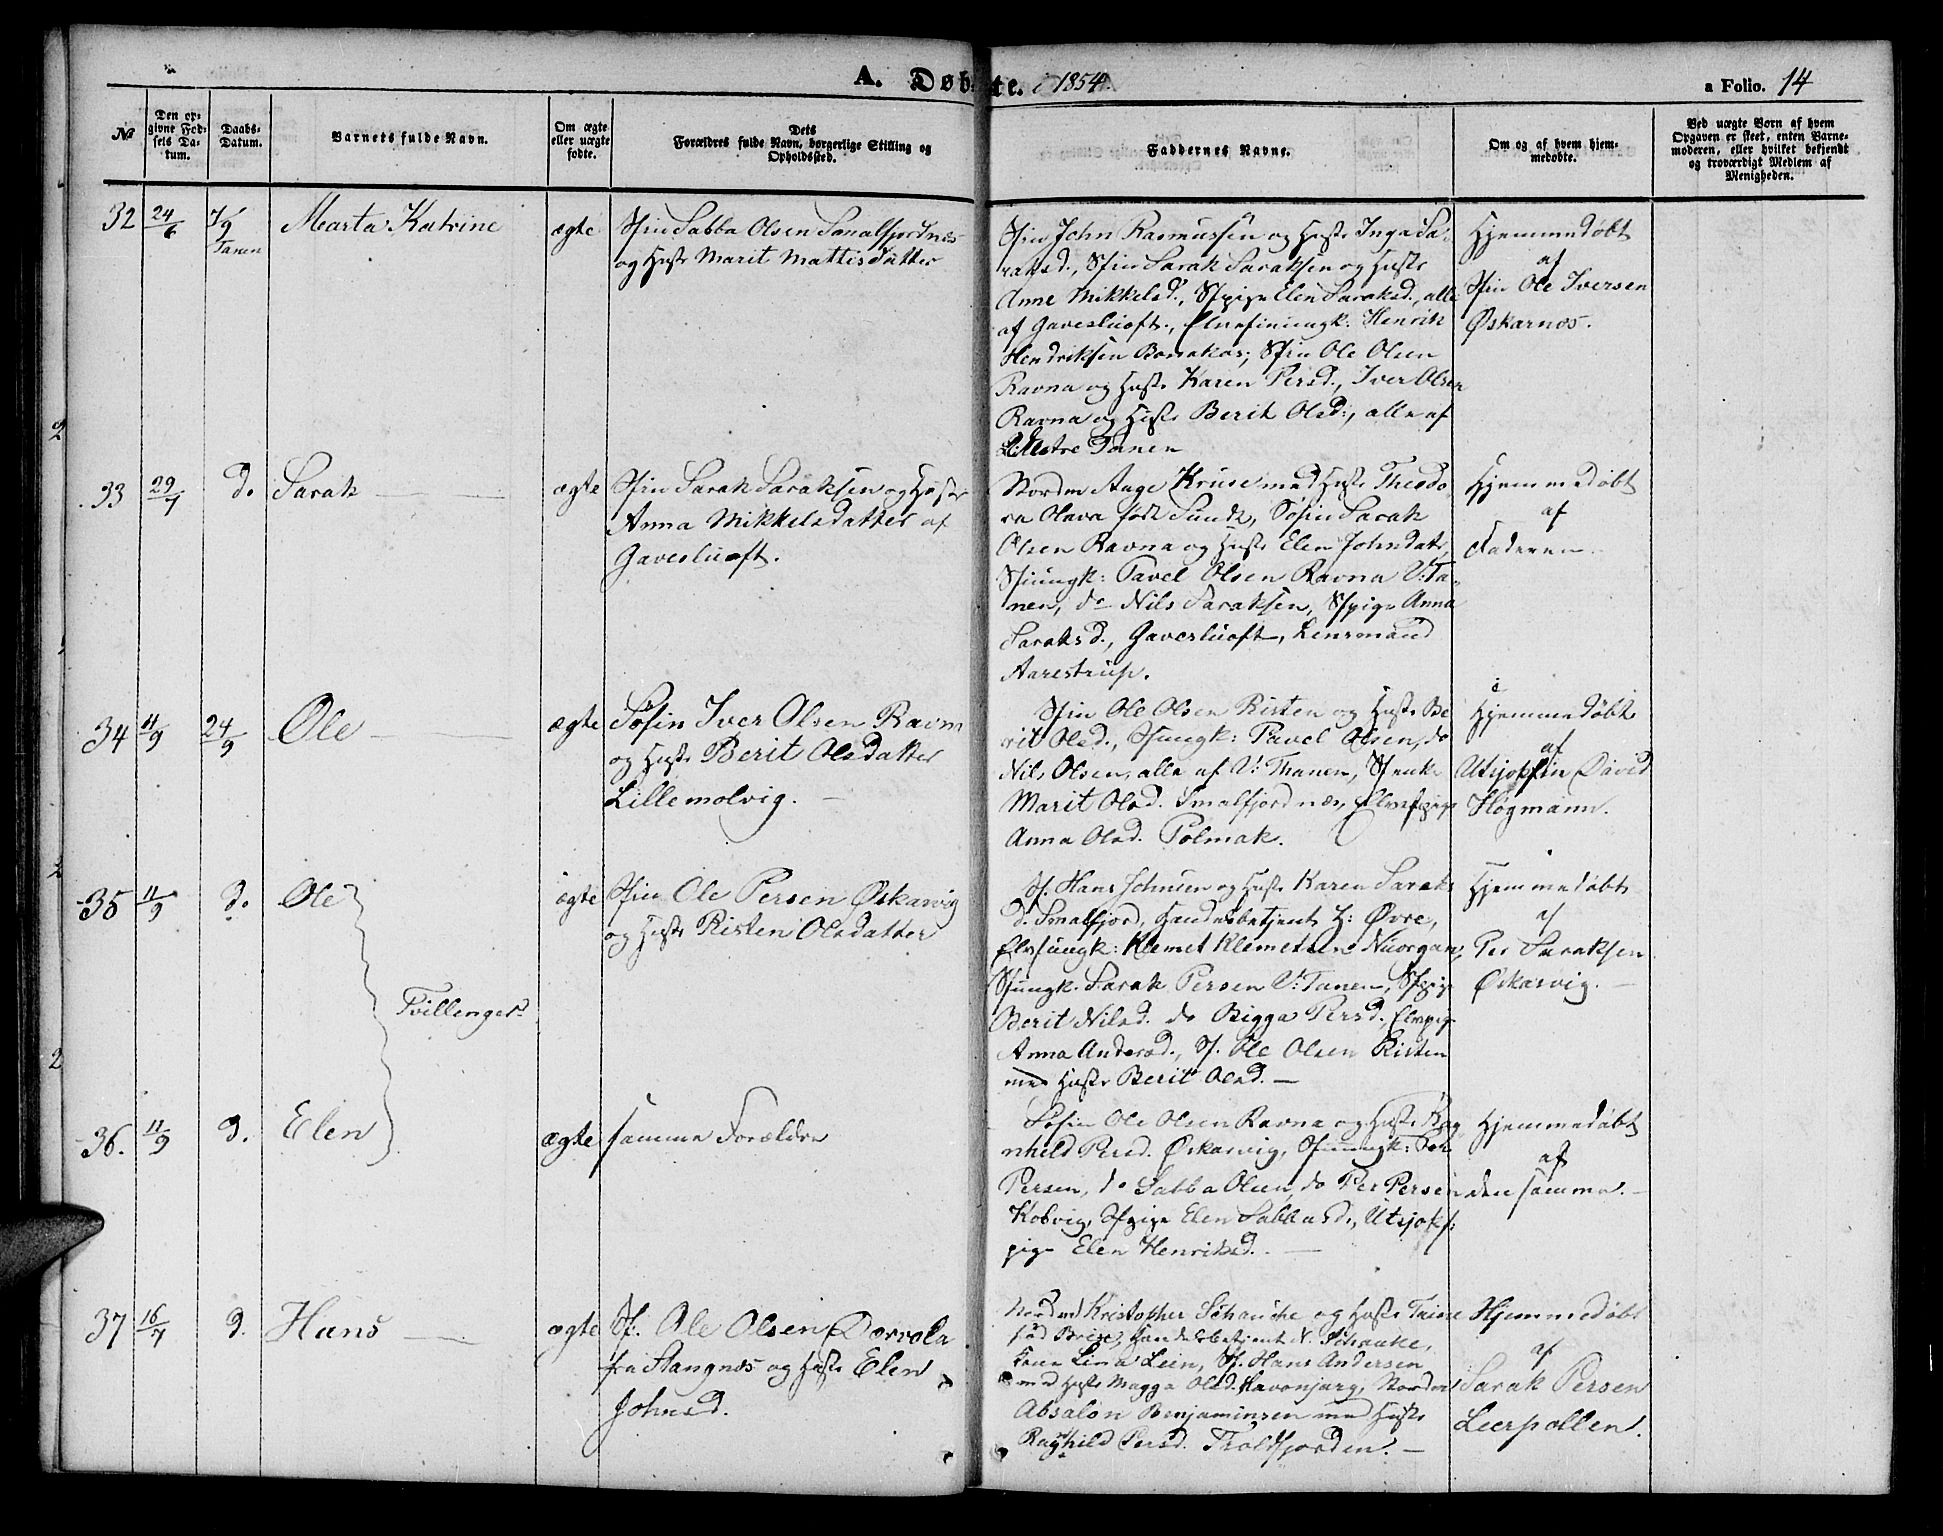 A. Døbte. i 1854.
a Folio. 14
No
Den opgivne Fødsels Datum.
Daabs-Datum.
Barnets fulde Navn.
Om ægte eller uægte fødte.
Dets Forældres fulde Navn, borgerlige Stilling og Opholdssted.
Faddernes Navne.
Om og af hvem hjemmedøbte.
Ved uægte Børn af hvem Opgaven er skeet, enten Barnemoderen, eller hvilket bekjendt og troværdigt Medlem af Menigheden.
32
24/6
7/9
Tanen
Marta Katrine
ægte
Sfin Sabba Olsen Smalfjordnæs
og Hustr Marit Mattisdatter
Sfin John Rasmussen og Hustr Inga Sa-
raksd., Sfin Sarak Saraksen og Hustr
Anne Mikkelsd., Sfpige Elen Saraksd., alle
af Gavesluoft., Elvefinungk: Henrik
Hendriksen ; Sfin Ole Olsen
Ravna og Hustr Karen Persd., Iver Olsen
Ravna og Hustr Berit Olsd:, alle af
Vestre Tanen
Hjemmedøbt
af
Sfin Ole Iversen
Øskarnæs.
33
29/7
do
Sarak
ægte
Sfin Sarak Saraksen og Hustr
Anna Mikkelsdatter af
Gavesluoft.
Nordm Aage Kruse med Hustr Theodo-
ra Olava født Sundt, Søfin Sarak
Olsen Ravna og Hustr Elen Johnsdatr,
Sfiungk: Pavel Olsen Ravna V: Ta-
nen, do Nils Saraksen, Sfpige Anna
Saraksd., Gavesluoft, Lensmand
Aarestrup.
Hjemmedøbt
af
Faderen
34
11/9
24/9
Ole
ægte
Søfin Iver Olsen Ravna
og Hustr Berit Olsdatter
Lillemolvig.
Sfin Ole Olsen Risten og Hustr Be-
rit Olsd., Sfungk: Pavel Olsen, do
Nils Olsen, alle af V: Thanen, Sfenke
Marit Olsd. Smalfjordnæs, Elvefpige
Anna Olsd. Polmak.
Hjemmedøbt
af
Utsjokfin David
Høgmann.
35
11/9
do
Ole
Tvillinger
ægte
Sfin Ole Persen Øskarvig
og Hustr Risten Olsdatter
Sf. Hans Johnsen og Hustr Karen Saraks
d. Smalfjord, Handelsbetjent H: Øvre,
Elvfungk: Klemet Klemetsen Nuorgan,
Sfungk. Sarak Persen V: Tanen, Sfpige
Berit Nilsd. do Bigga Persd., Elvepige
Anna Andersd., Sf. Ole Olsen Risten
med Hustr Berit Olsd.
Hjemmedøbt
af
Per Saraksen
Øskarvig.
36.
11/9
d.
Elen
ægte
samme Forældre
Søfin Ole Olsen Ravna og Hustr Rag-
nhild Persd. Øskarvig, Sfiungk: Per
Persen, do Sabba Olsen, do Per Persen
Kobvig, Sfpige Elen Sabbasd., Utsjokf:
pige Elen Henriksd.
Hjemmedøbt
af
den samme.
37
16/7
d.
Hans
ægte
Sf. Ole Olsen Dorvola
fra Stangnæs og Hustr Elen
Johnsd.
Nordm Kristopher Schanche og Hustr Trine
fød Brix, Handelsbetjent N. Schanke,
Lina Lein, Sf. Hans Andersen
med Hustr Magga Olsd. Havonjarg, Nordm
Absalon Benjaminsen med Hustr
Ragnhild Persd. Troldfjorden.
Hjemmedøbt
af
Sarak Persen
Leerpollen.